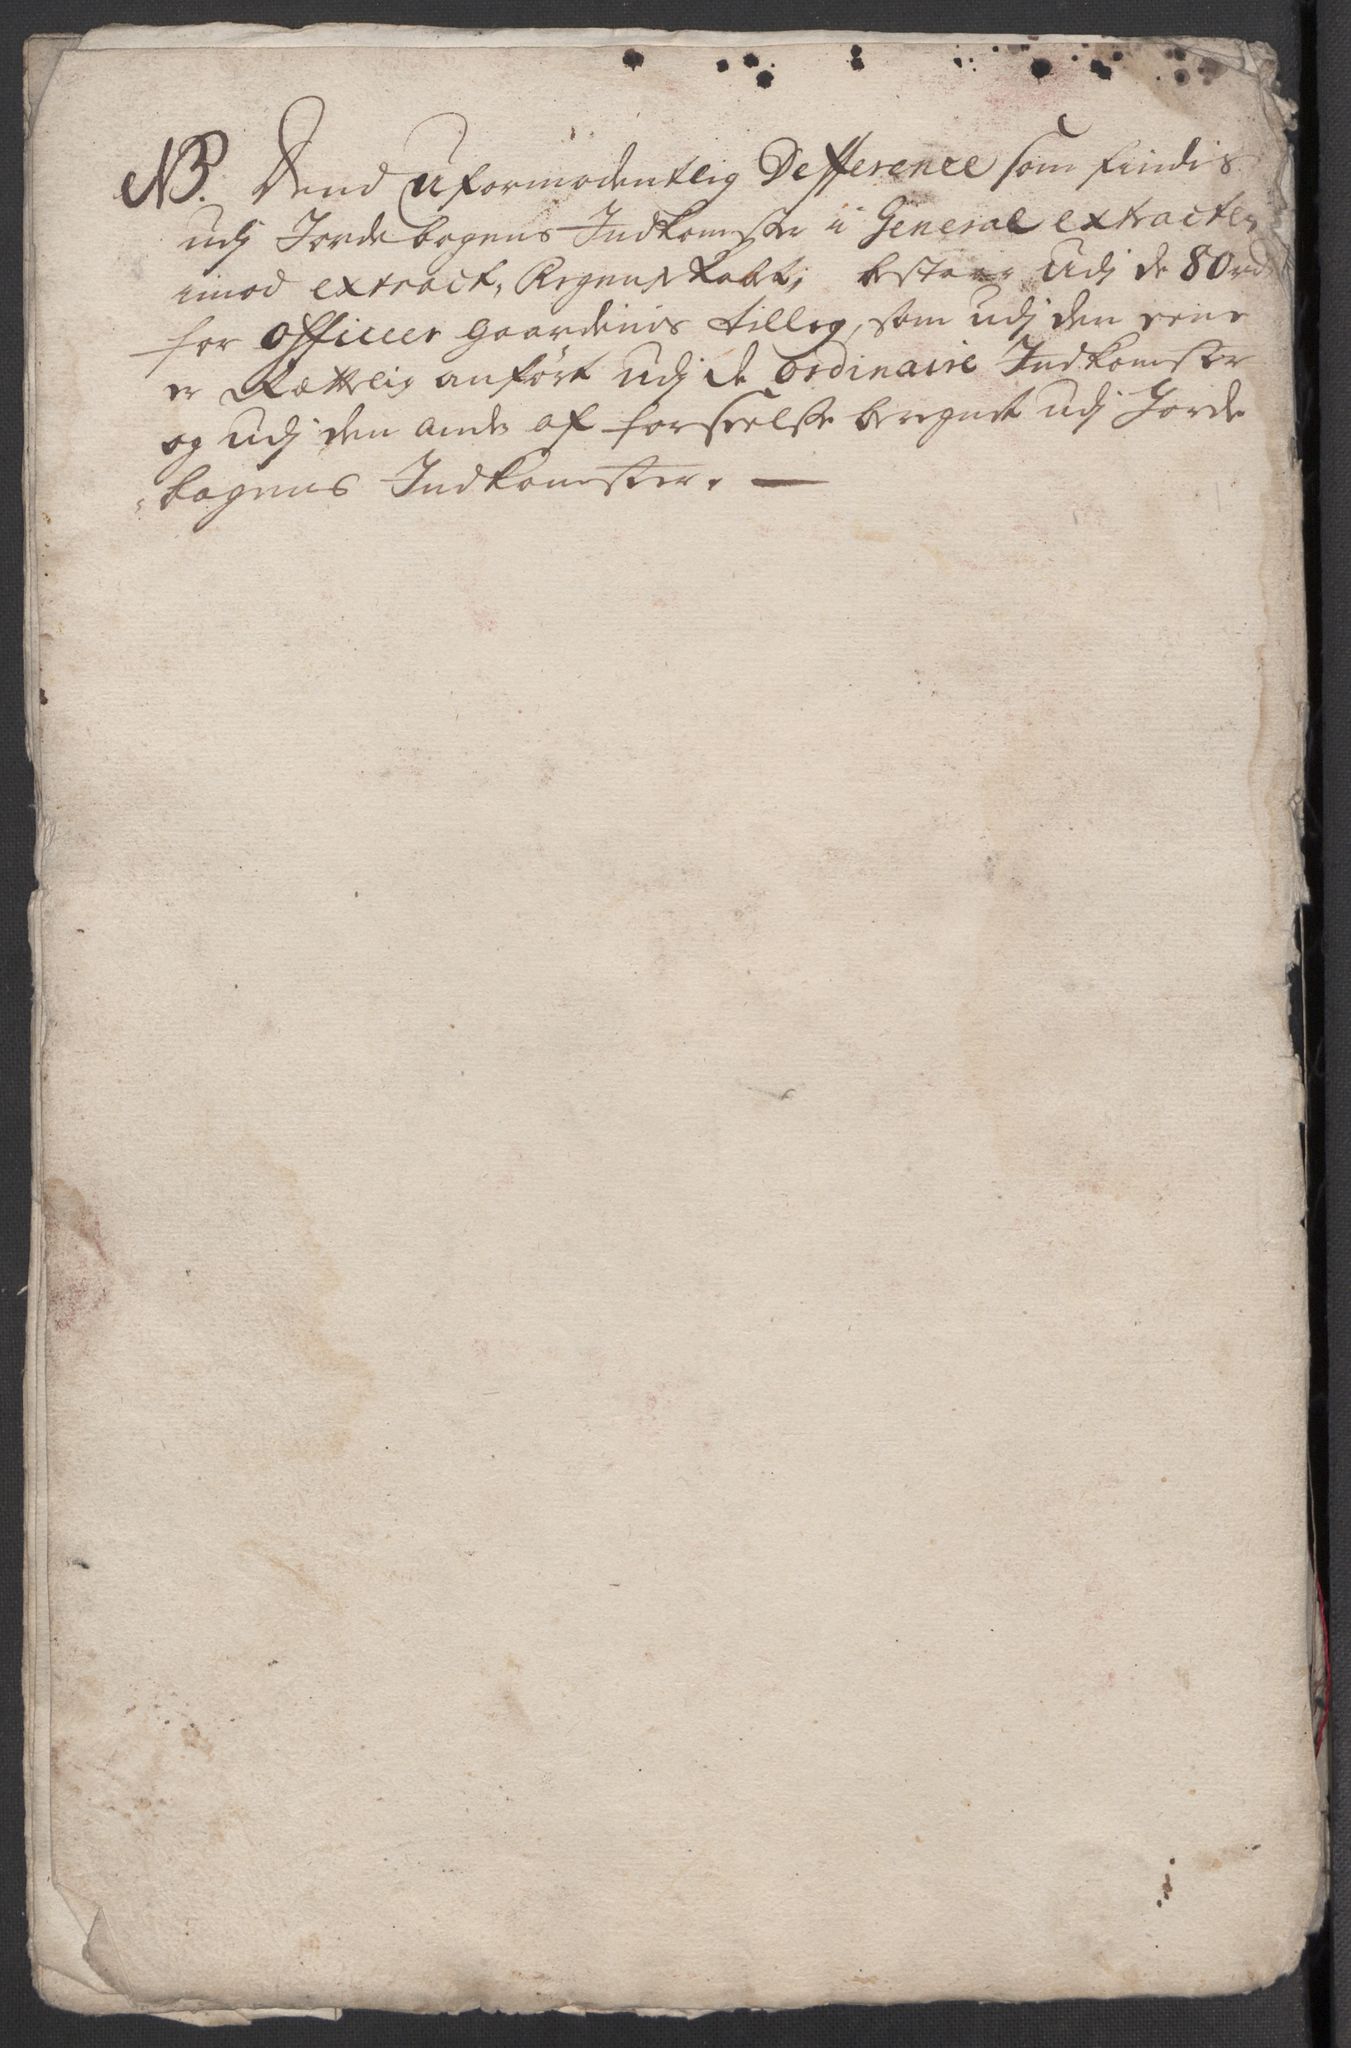 NB. Dend uformodentlig Defference som findis
udj Jordebogens Indkomster i General extracten
imod extract, Regenskabt, bestaar udj de 80 rd
for officeer gaardenis tilleg, som udj den eene
er Rættelig anført udj de ordinaire Indkomster
og udj den anden af forseelse beregnet udj Jorde
bogens Indkomster. —